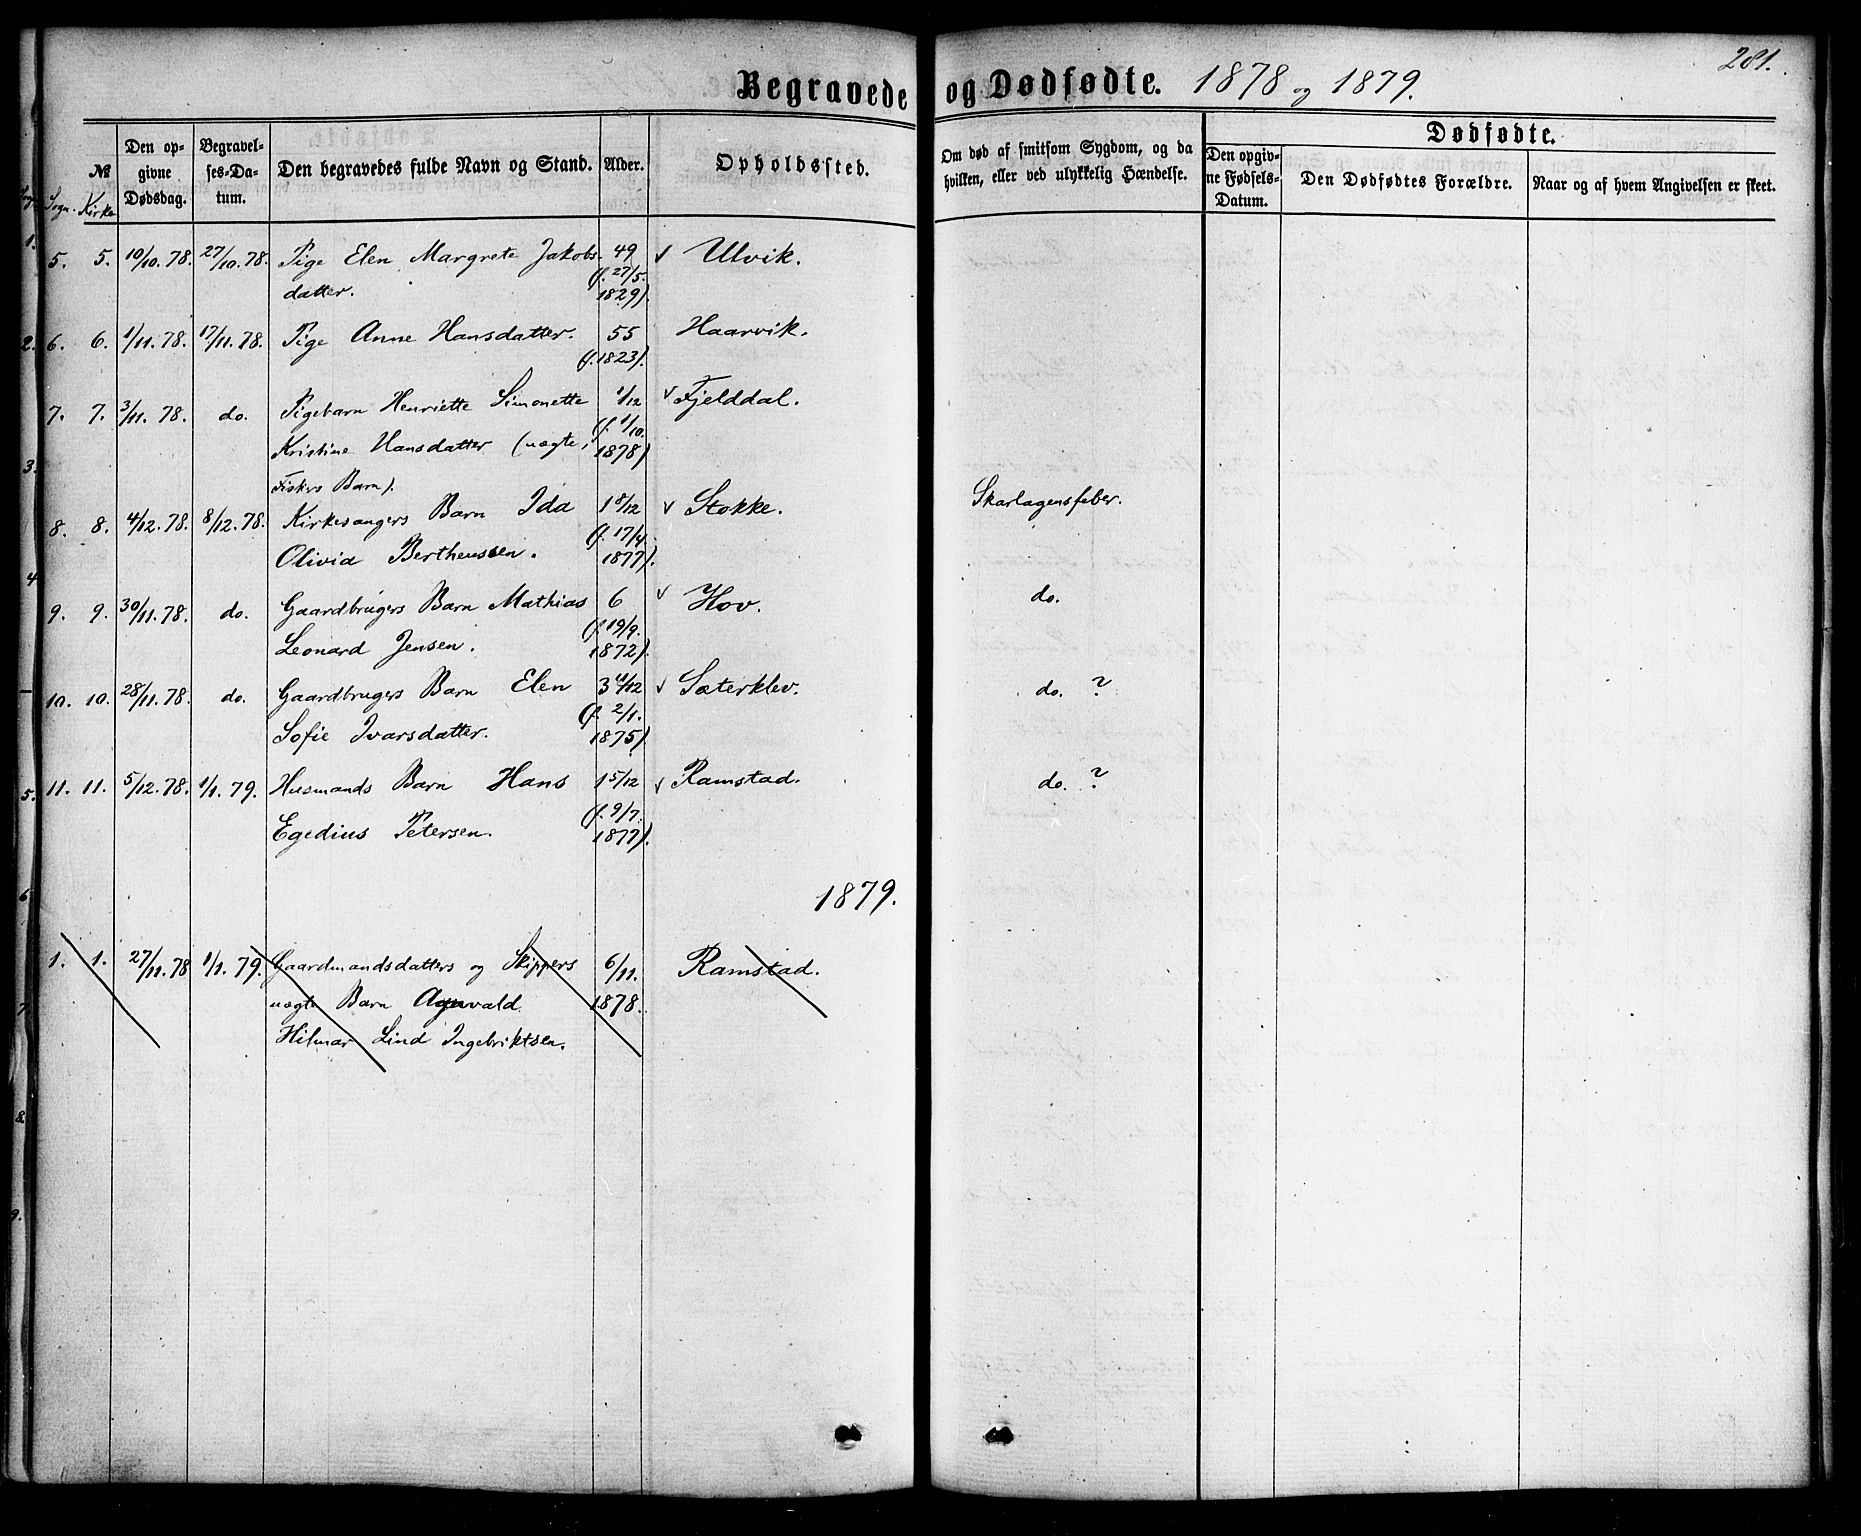 281.
Begravede og Dødfødte. 1878 og 1879.
№
Sogn. Kirke
Den opgivne Dødsdag.
Begravelses-Datum.
Den begravedes fulde Navn og Stand.
Alder.
Opholdssted.
Om død af smitsom Sygdom, og da
hvilken, eller ved ulykkelig Hændelse.
Dødfødte.
Den opgivne Fødsels-Datum.
Den Dødfødtes Forældre.
Naar og af hvem Angivelsen er skeet.
5. 5. 10/10. 78. 27/10. 78. Pige Elen Margrete Jakobs 49 Ulvik.
datter. (f. 27/5. 1829).
6. 6. 1/11. 78. 17/11. 78. Pige Anne Hansdatter. 55 Haarvik.
(f. 1823).
7. 7. 3/11. 78. do. Pigebarn Henriette Simonette 1/12 Fjelddal.
Kristine Hansdatter (uægte, (f. 1/10. 1878)
Fiskers Barn).
8. 8. 4/12. 78. 8/12. 78. Kirkesangers Barn Ida 1 8/12 Stokke. Skarlagensfeber.
Olivia Bertheussen. (f. 17/4. 1877).
9. 9. 30/11. 78. do. Gaardbrugers Barn Mathias 6 Hov. do.
Leonard Jensen. (f. 19/9. 1872).
10. 10. 28/11. 78. do. Gaardbrugers Barn Elen 3 11/12 Sæterklev. do. ?
Sofie Ivarsdatter. (f. 2/1. 1875).
11. 11. 5/12. 78. 1/1. 79. Husmands Barn Hans 1 5/12 Ramstad. do. ?
Egedius Petersen. (f. 9/7. 1877).
1879.
1. 1. 27/11. 78 1/1. 79. Gaardmandsdatters og Skippers 6/11. Ramstad.
uægte Barn Agnvald 1878.
Hilmar Lind Ingebriktsen.